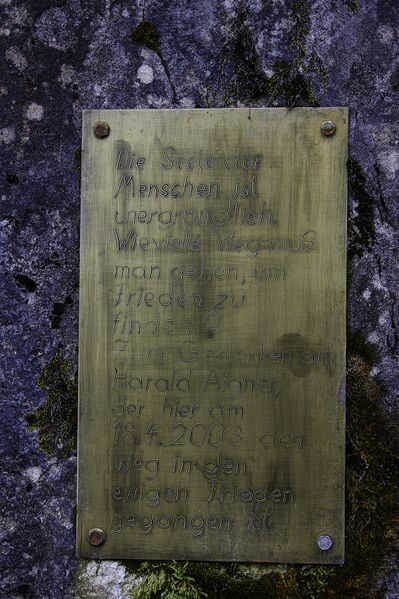 Die Seele der
Menschen ist
unergründlich,
Wieviele Weg muß
man gehen, um
Frieden zu
finden?
Zum Gedenken an
Harald Aigner,
der hier am
18.4.2003 den
Weg in den
ewigen Frieden
gegangen ist